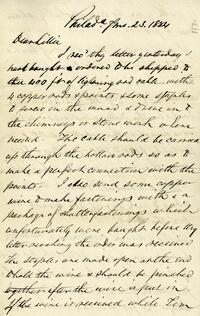 Philada 23. 1884
Dear Lillie
I rec'd thy letter yesterday
& ordered to be shipped to
thee 400 ft of lightning rod cable with
4 copper rods & points & some staples
to screw in the wood & drive in to
the chimneys or stone work where
needed. The cable should be carried
up through the hollow rods so as to
make a perfect connection with the
points. I also send some copper
wire to make fastenings with & a
package of shutter fastenings which
unfortunately were bought before thy
letter reaching the odor was received
The staples are made open at the end
to hold the wire & should be pinched
together after the wire is put in
If the wire is received while Tom